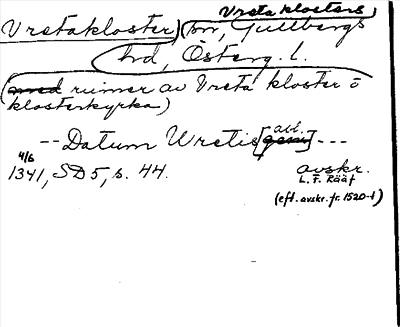 Vreta klosters
Vretakloster) sn, Gullbergs
hd, Österg. l.
(med ruiner av Vreta kloster o
klosterkyrka)
-- Datum Wretis [abl.] ---
4/6
1341, SD 5, s. 44. avskr.
L. F. Rääf
(eft. avskr. fr. 1520-t)